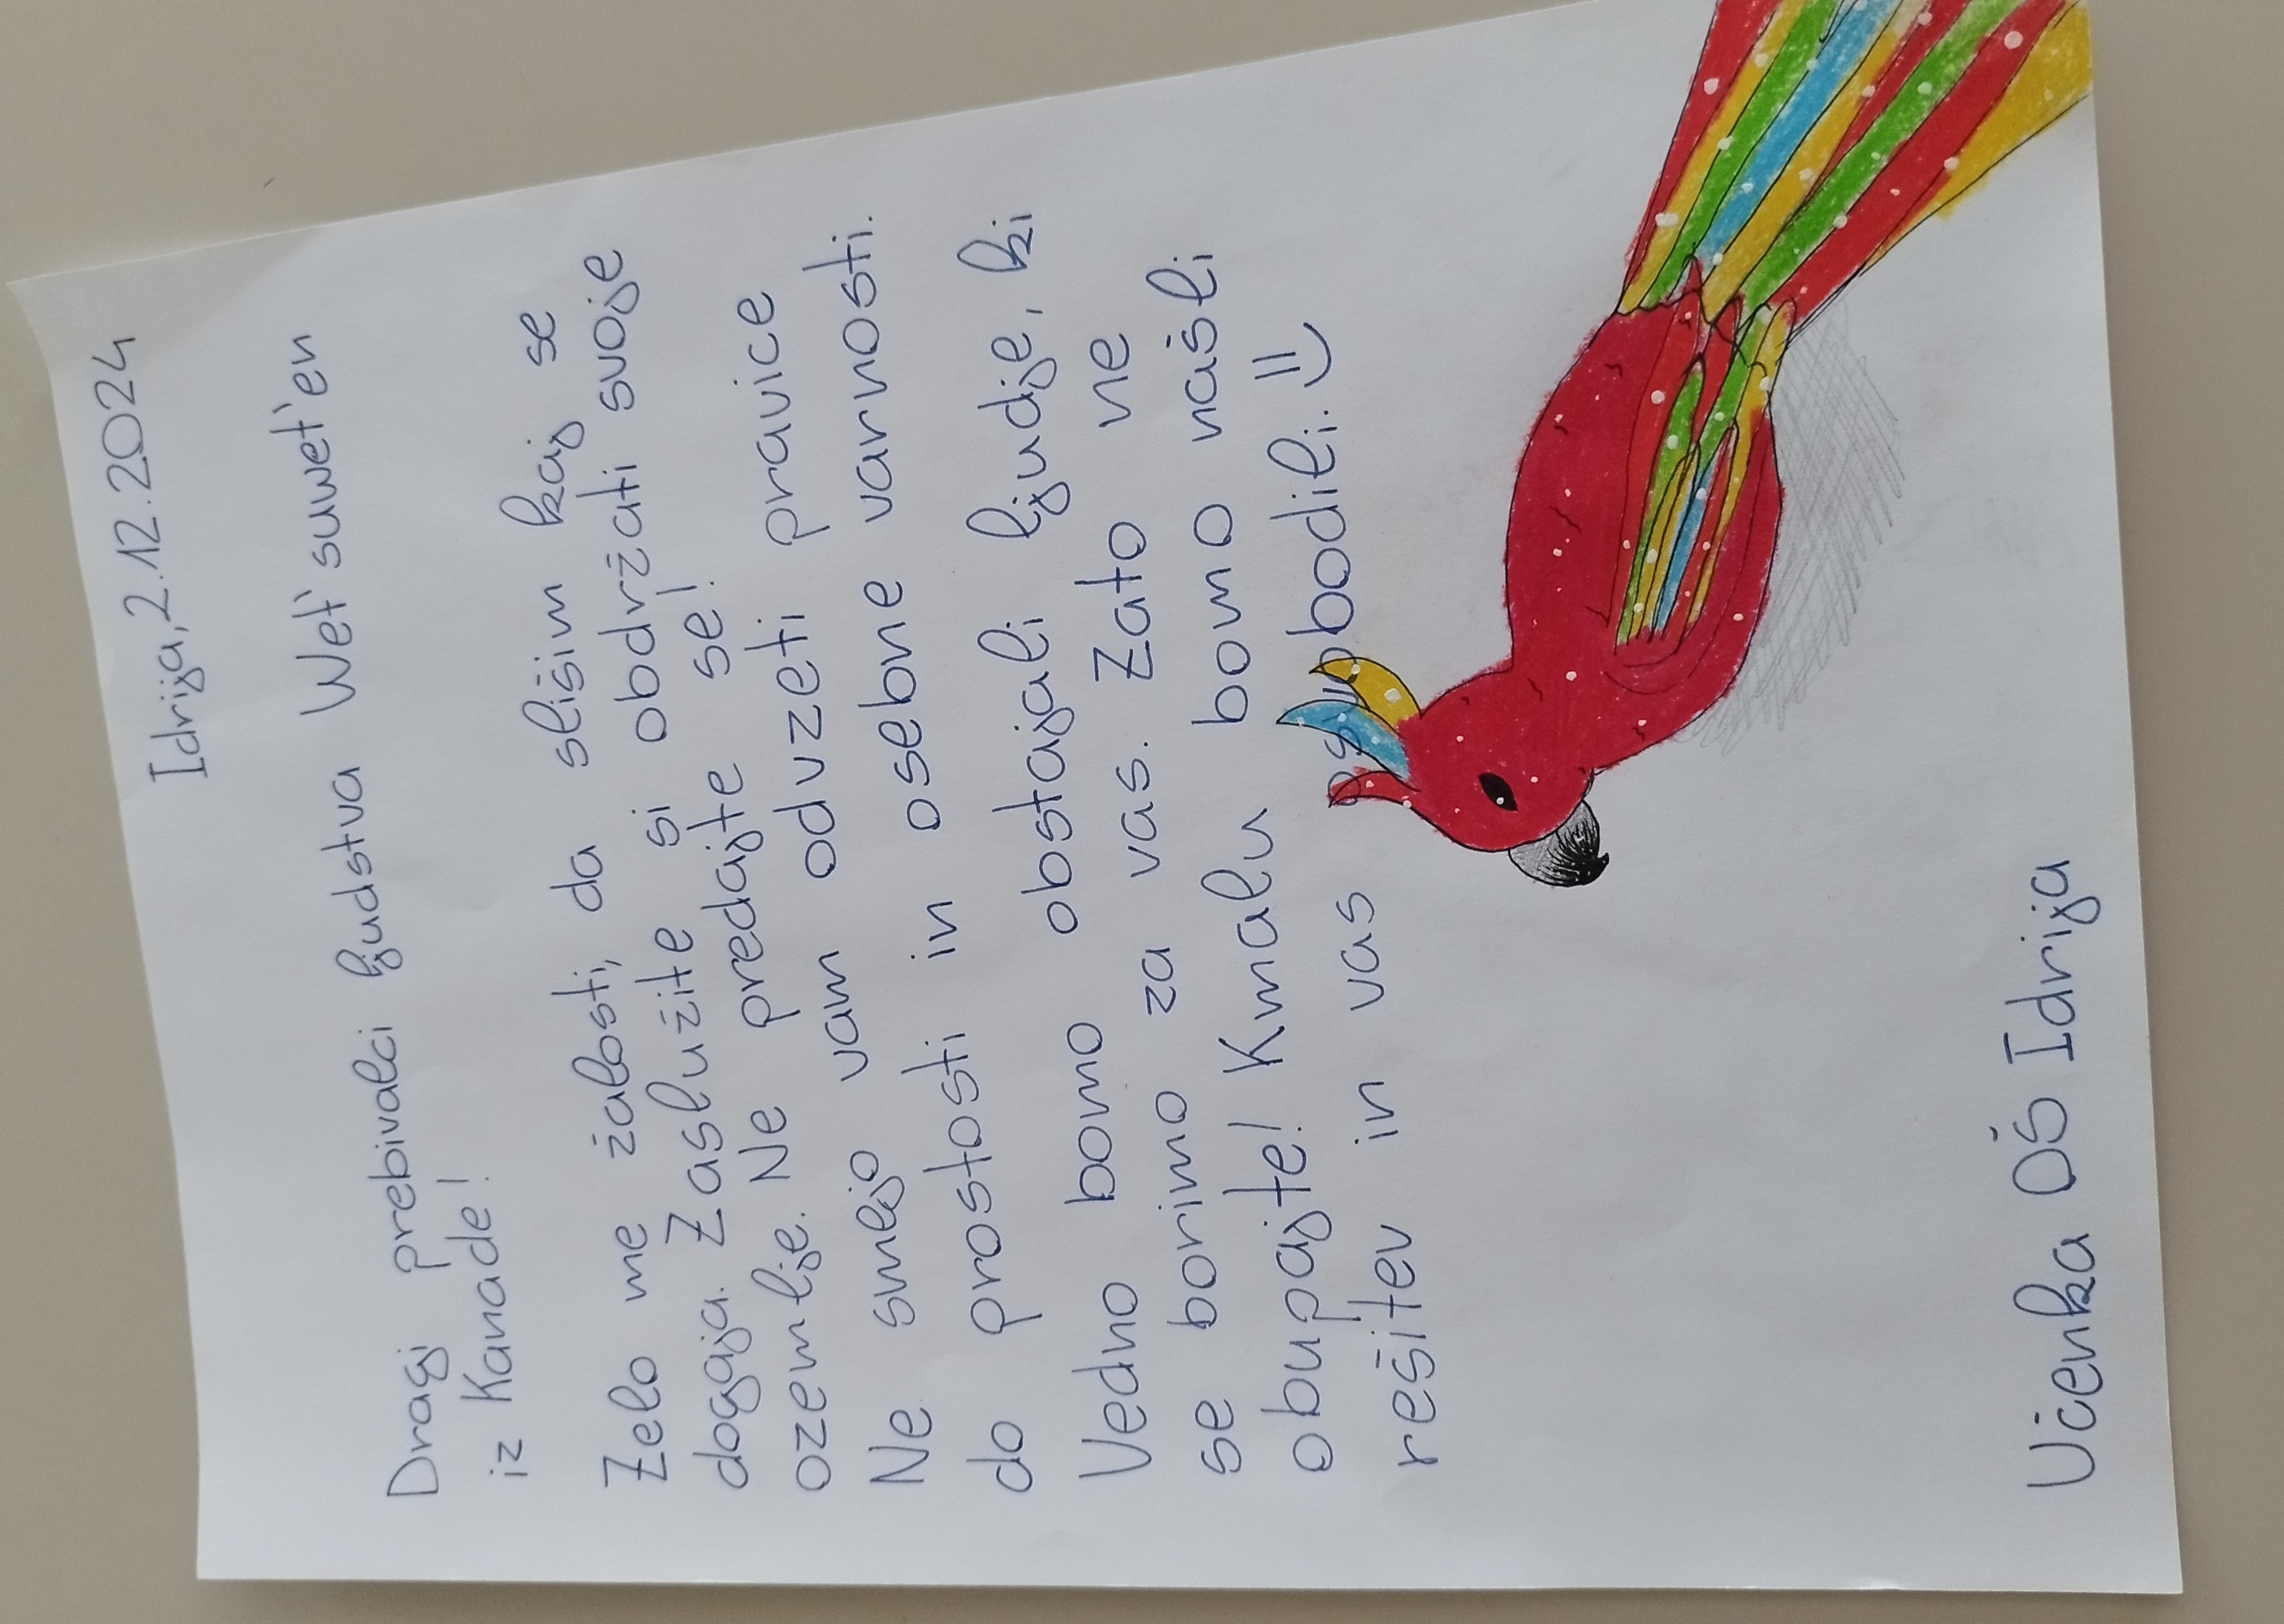 Idrija, 2.12.2024
Dragi prebivalci ljudstva Wet'suwet'en
iz Kanade!
Zelo me žalosti, da slišim kaj se
dogaja. Zaslužite si obdržati svoje
ozemlje. Ne predajte se!
Ne smejo vam odvzeti pravice
do prostosti in osebne varnosti.
Vedno bomo obstajali ljudje, ki
se borimo za vas. Zato ne
obupajte! Kmalu bomo našli
rešitev in vas osvobodili. =)
Učenka OŠ Idrija